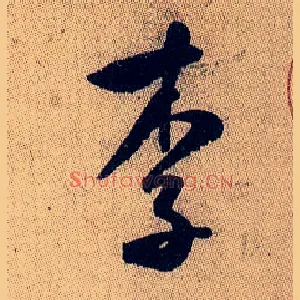 李
Shufawang.CN